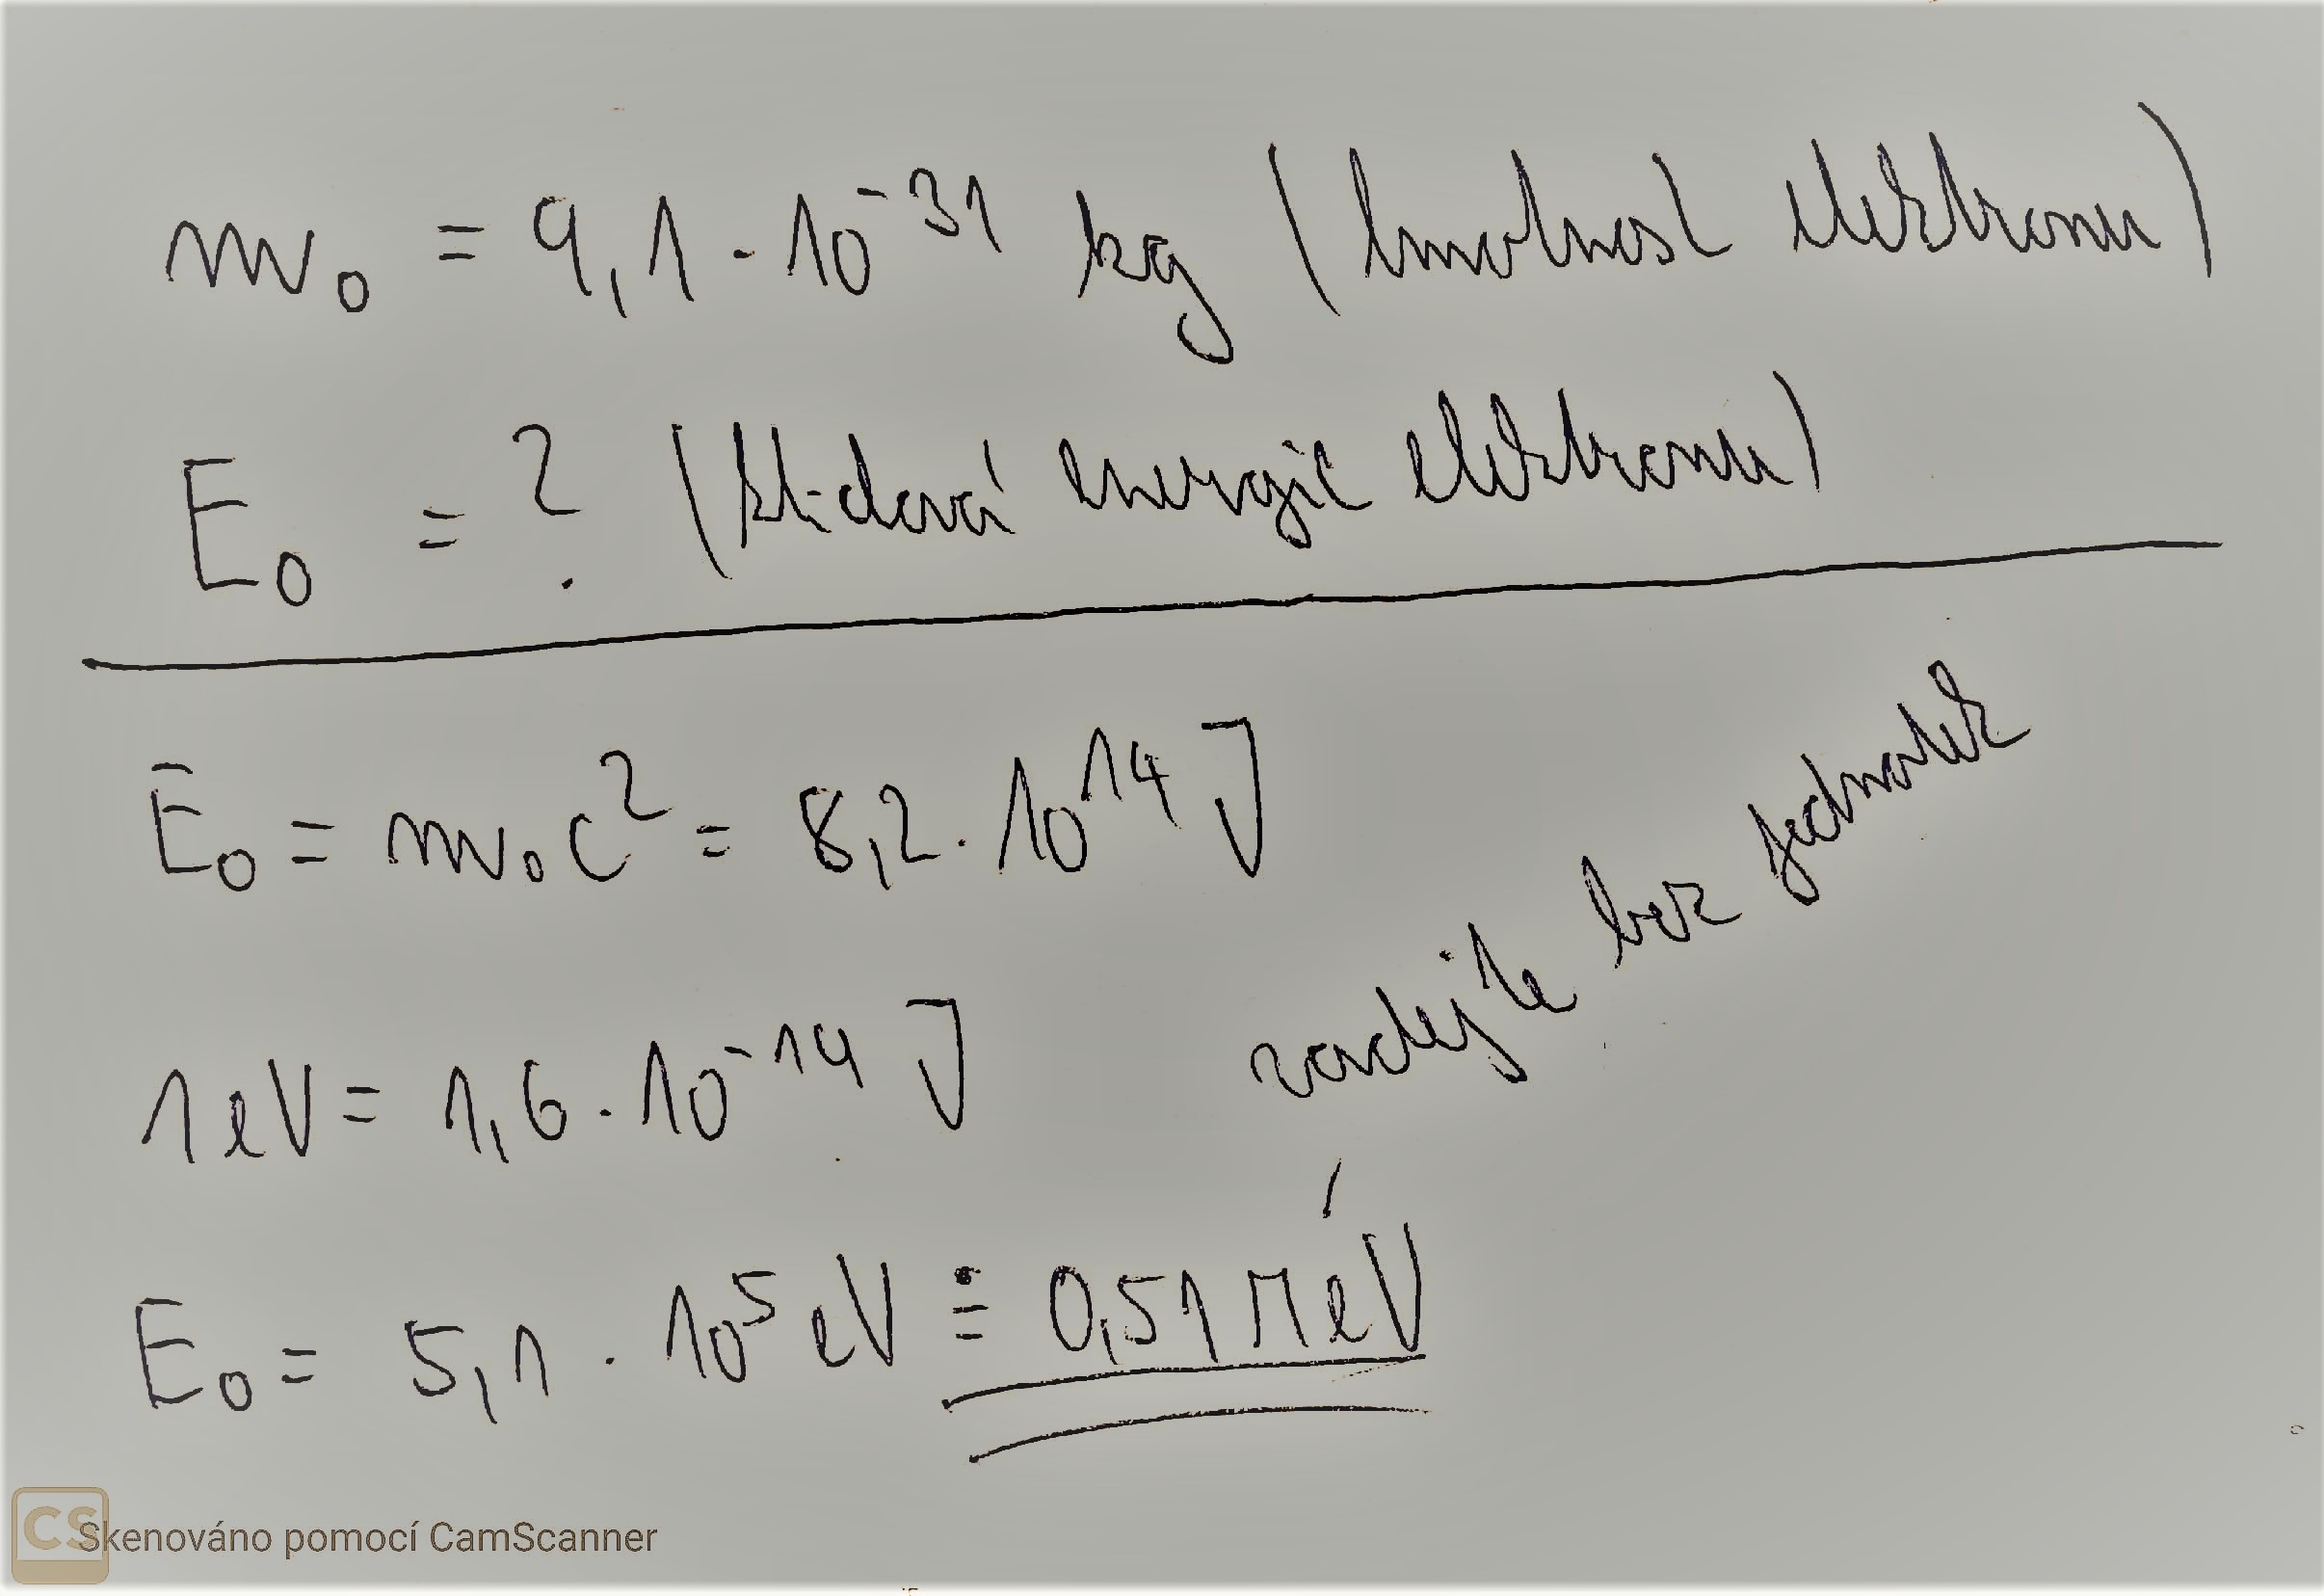 m₀ = 9,1 · 10⁻³¹ kg (hmotnost elektronu)
E₀ = ? (klidová energie elektronu)
E₀ = m₀c² = 8,2 · 10¹⁴ J
1 eV = 1,6 · 10⁻¹⁹ J
zadejte bez jednotek
E₀ = 5,1 · 10⁵ eV ≐ 0,51 MeV
CS Skenováno pomocí CamScanner